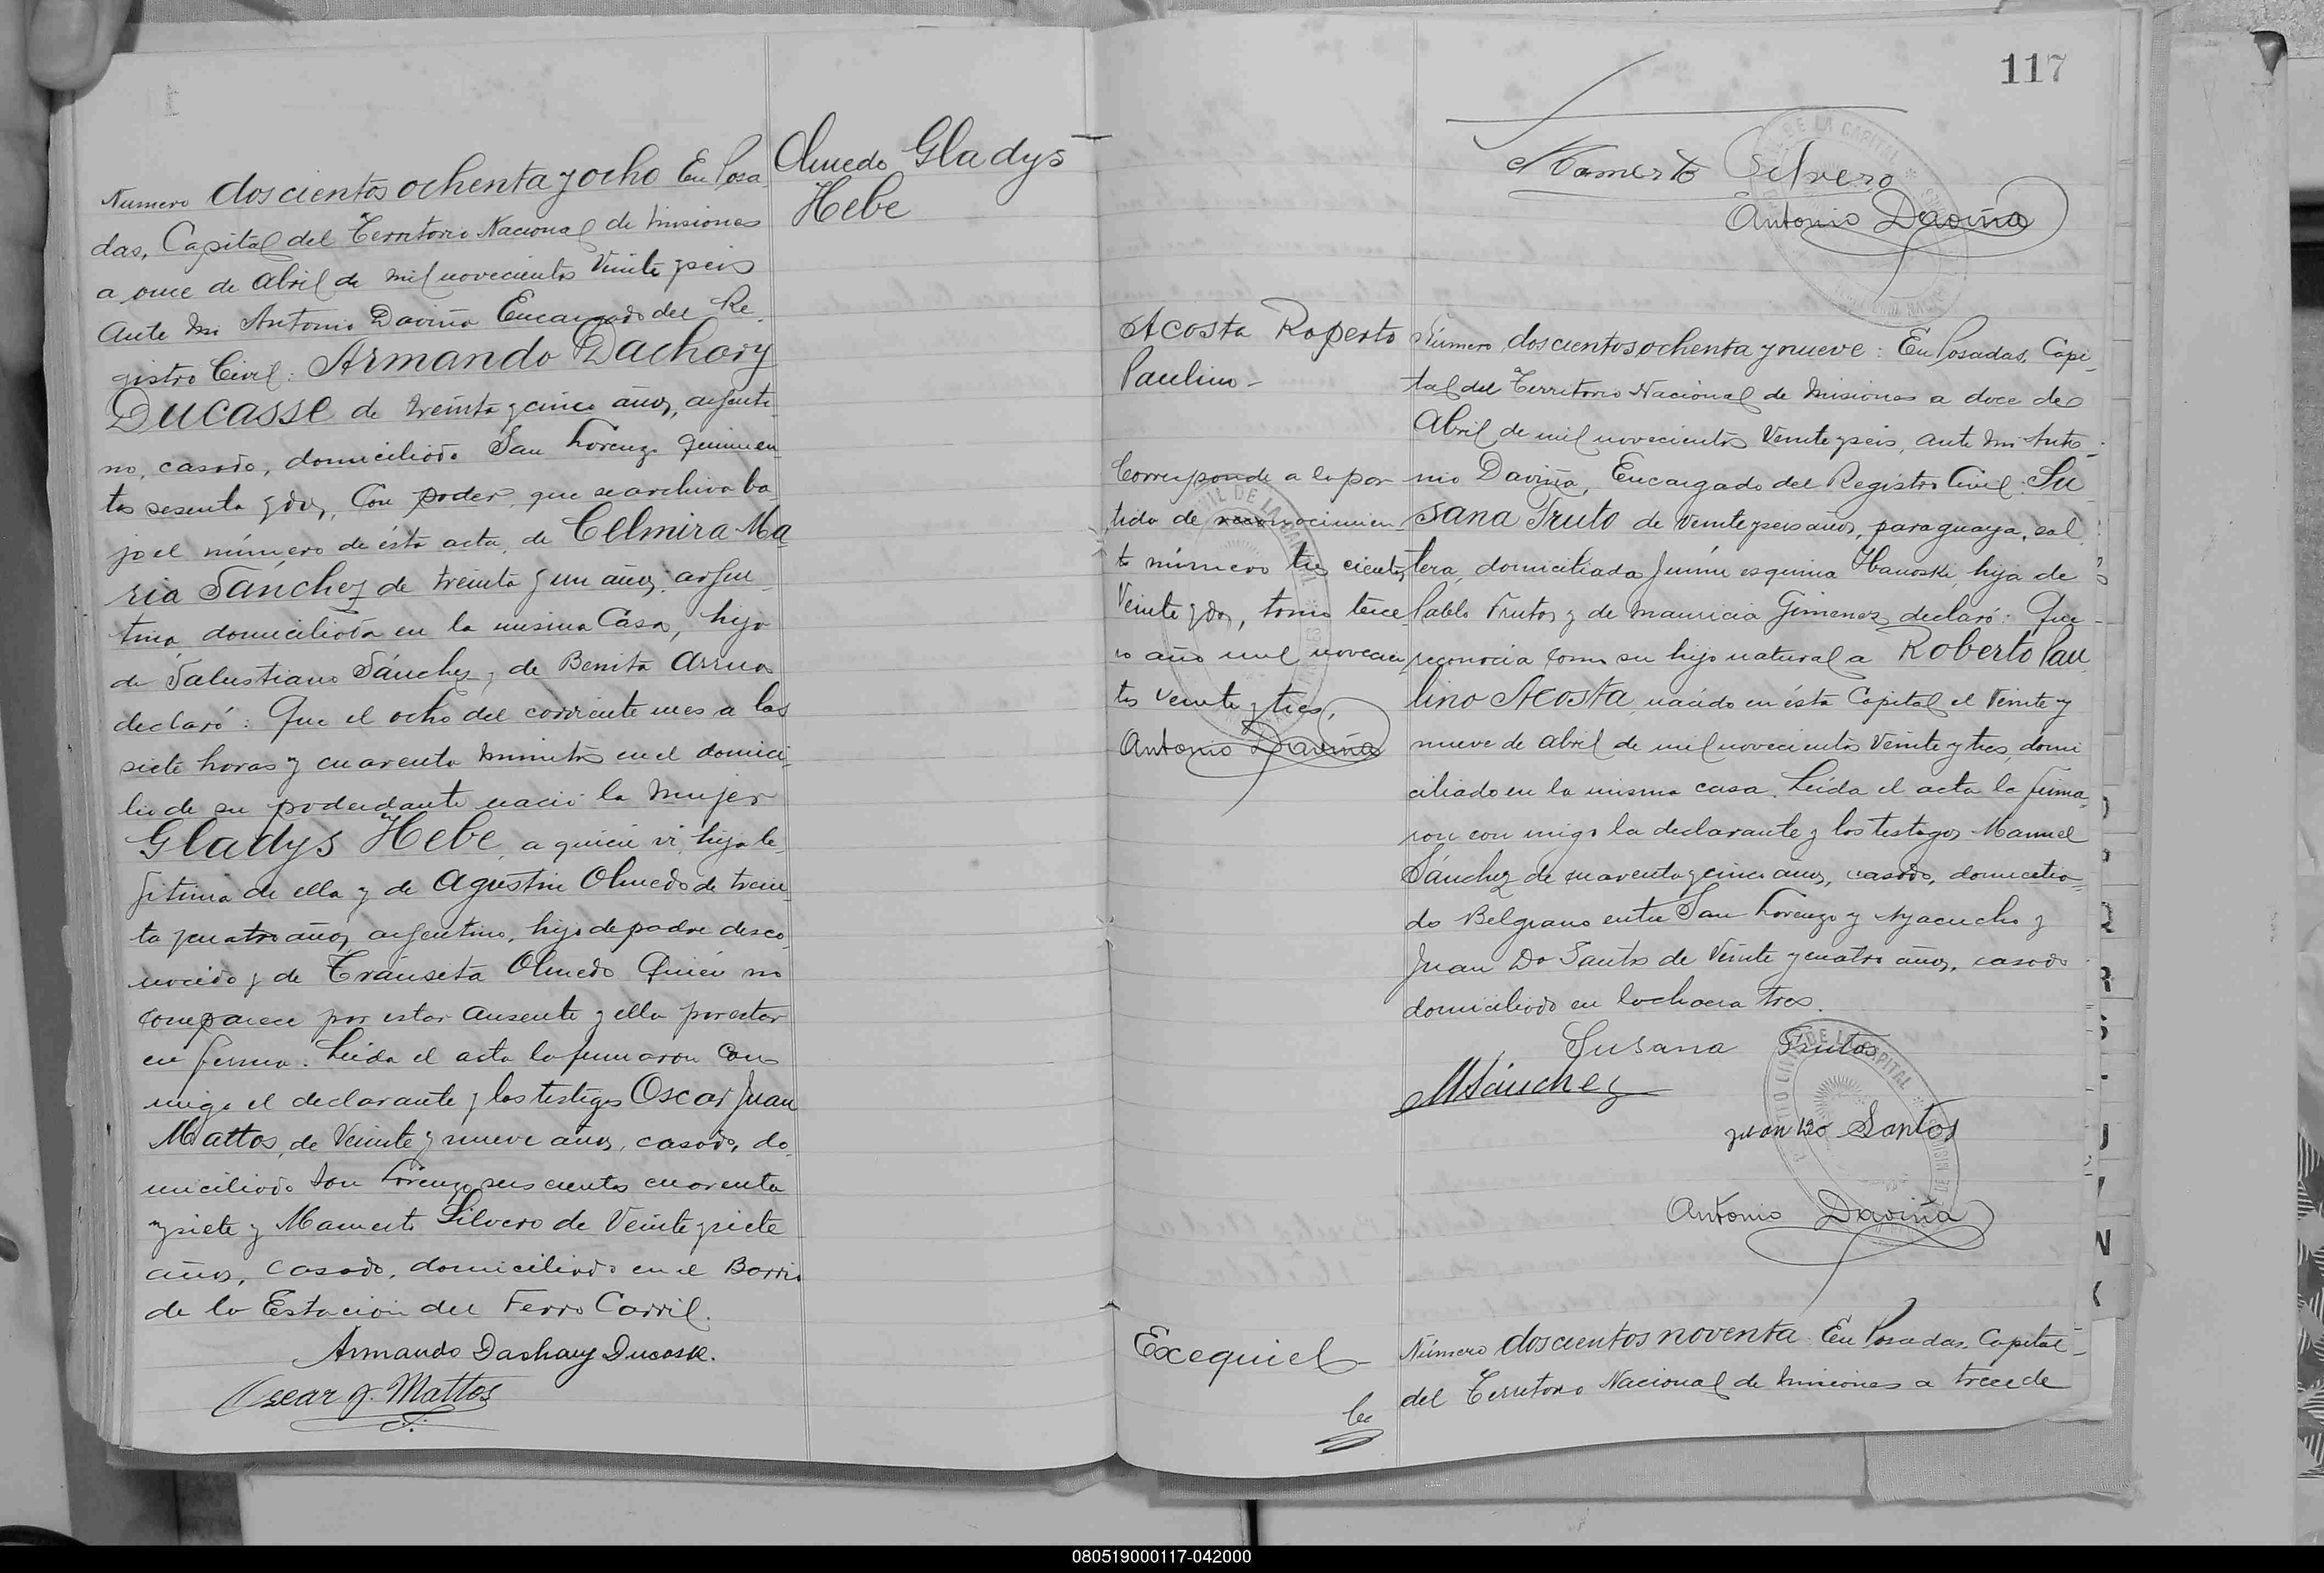 Numero doscientos ochenta y ocho En Posa
das, Capital del Territorio Nacional de Misiones
a once de Abril de mil novecientos Veinte y seis
Ante mi Antonio Daviña Encargado del Re
gistro Civil: Armando Dachary
Ducasse de treinta y cinco años, argenti
no, casado, domiciliado San Lorenzo quinien
tos sesenta y dos, Con poder, que se archiva ba
jo el número de ésta acta, de Celmira Ma
ria Sánchez de treinta y un años, argen
tina, domiciliada en la misma Casa, hija
de Salustiano Sánchez y de Benita Arrua
declaró: Que el ocho del corriente mes a las
siete horas y cuarenta minutos en el domici
lio de su poderdante nació la mujer
Gladys Hebe, a quien vi, hija le
gitima de ella y de Agustin Olmedo de trein
ta y cuatro años, argentino, hijo de padre desco
nocido y de Tránseta Olmedo Quien no
comparece por estar ausente y ella por estar
enferma. Leida el acta la firmaron con
migo el declarante y los testigos Oscar Juan
Mattos, de Veinte y nueve años, casado, do
miciliado San Lorenzo seis cientos cuarenta
y siete y Mamerto Silvero de Veinte y siete
años, casado, domiciliado en el Barrio
de la Estación del Ferro Carril.
Armando Dachary Ducasse.
Oscar J. Mattos
Olmedo Gladys
Hebe
117
Mamerto Silvero
Antonio Daviña
Acosta Roperto
Paulino-
Corresponde a la par
tida de reconocimien
to número tres cientos
Veinte y dos, tomo terce
ro año mil novecien
tos veinte y tres.
Antonio Daviña
Número doscientos ochenta y nueve: En Posadas, Capi
tal del Territorio Nacional de Misiones a doce de
Abril de mil novecientos Veinte y seis, ante mi Anto
nio Daviña, Encargado del Registro Civil: Su
sana Fruto de veinte y seis años, paraguaya, sol
tera, domiciliada Junin esquina hija de
Pablo Frutos y de Mauricia Gimenez declaró: Que
reconocia como su hijo natural a Roberto Pau
lino Acosta, nacido en ésta Capital el Veinte y
nueve de Abril de mil novecientos Veinte y tres, domi
ciliado en la misma casa. Leida el acta la firma
ron con migo la declarante y los testigos Manuel
Sánchez de cuarenta y cinco años, casado, domicilia
do Belgrano entre San Lorenzo y Ayacucho y
Juan Do Santos de Veinte y cuatro años, casado
domiciliado en la chacra tres.
Susana Frutos
MSánchez
Juan Do Santos
Antonio Daviña
Exequiel-
Número doscientos noventa. En Posadas, Capital
del Territorio Nacional de Misiones a trece de
080519000117-042000